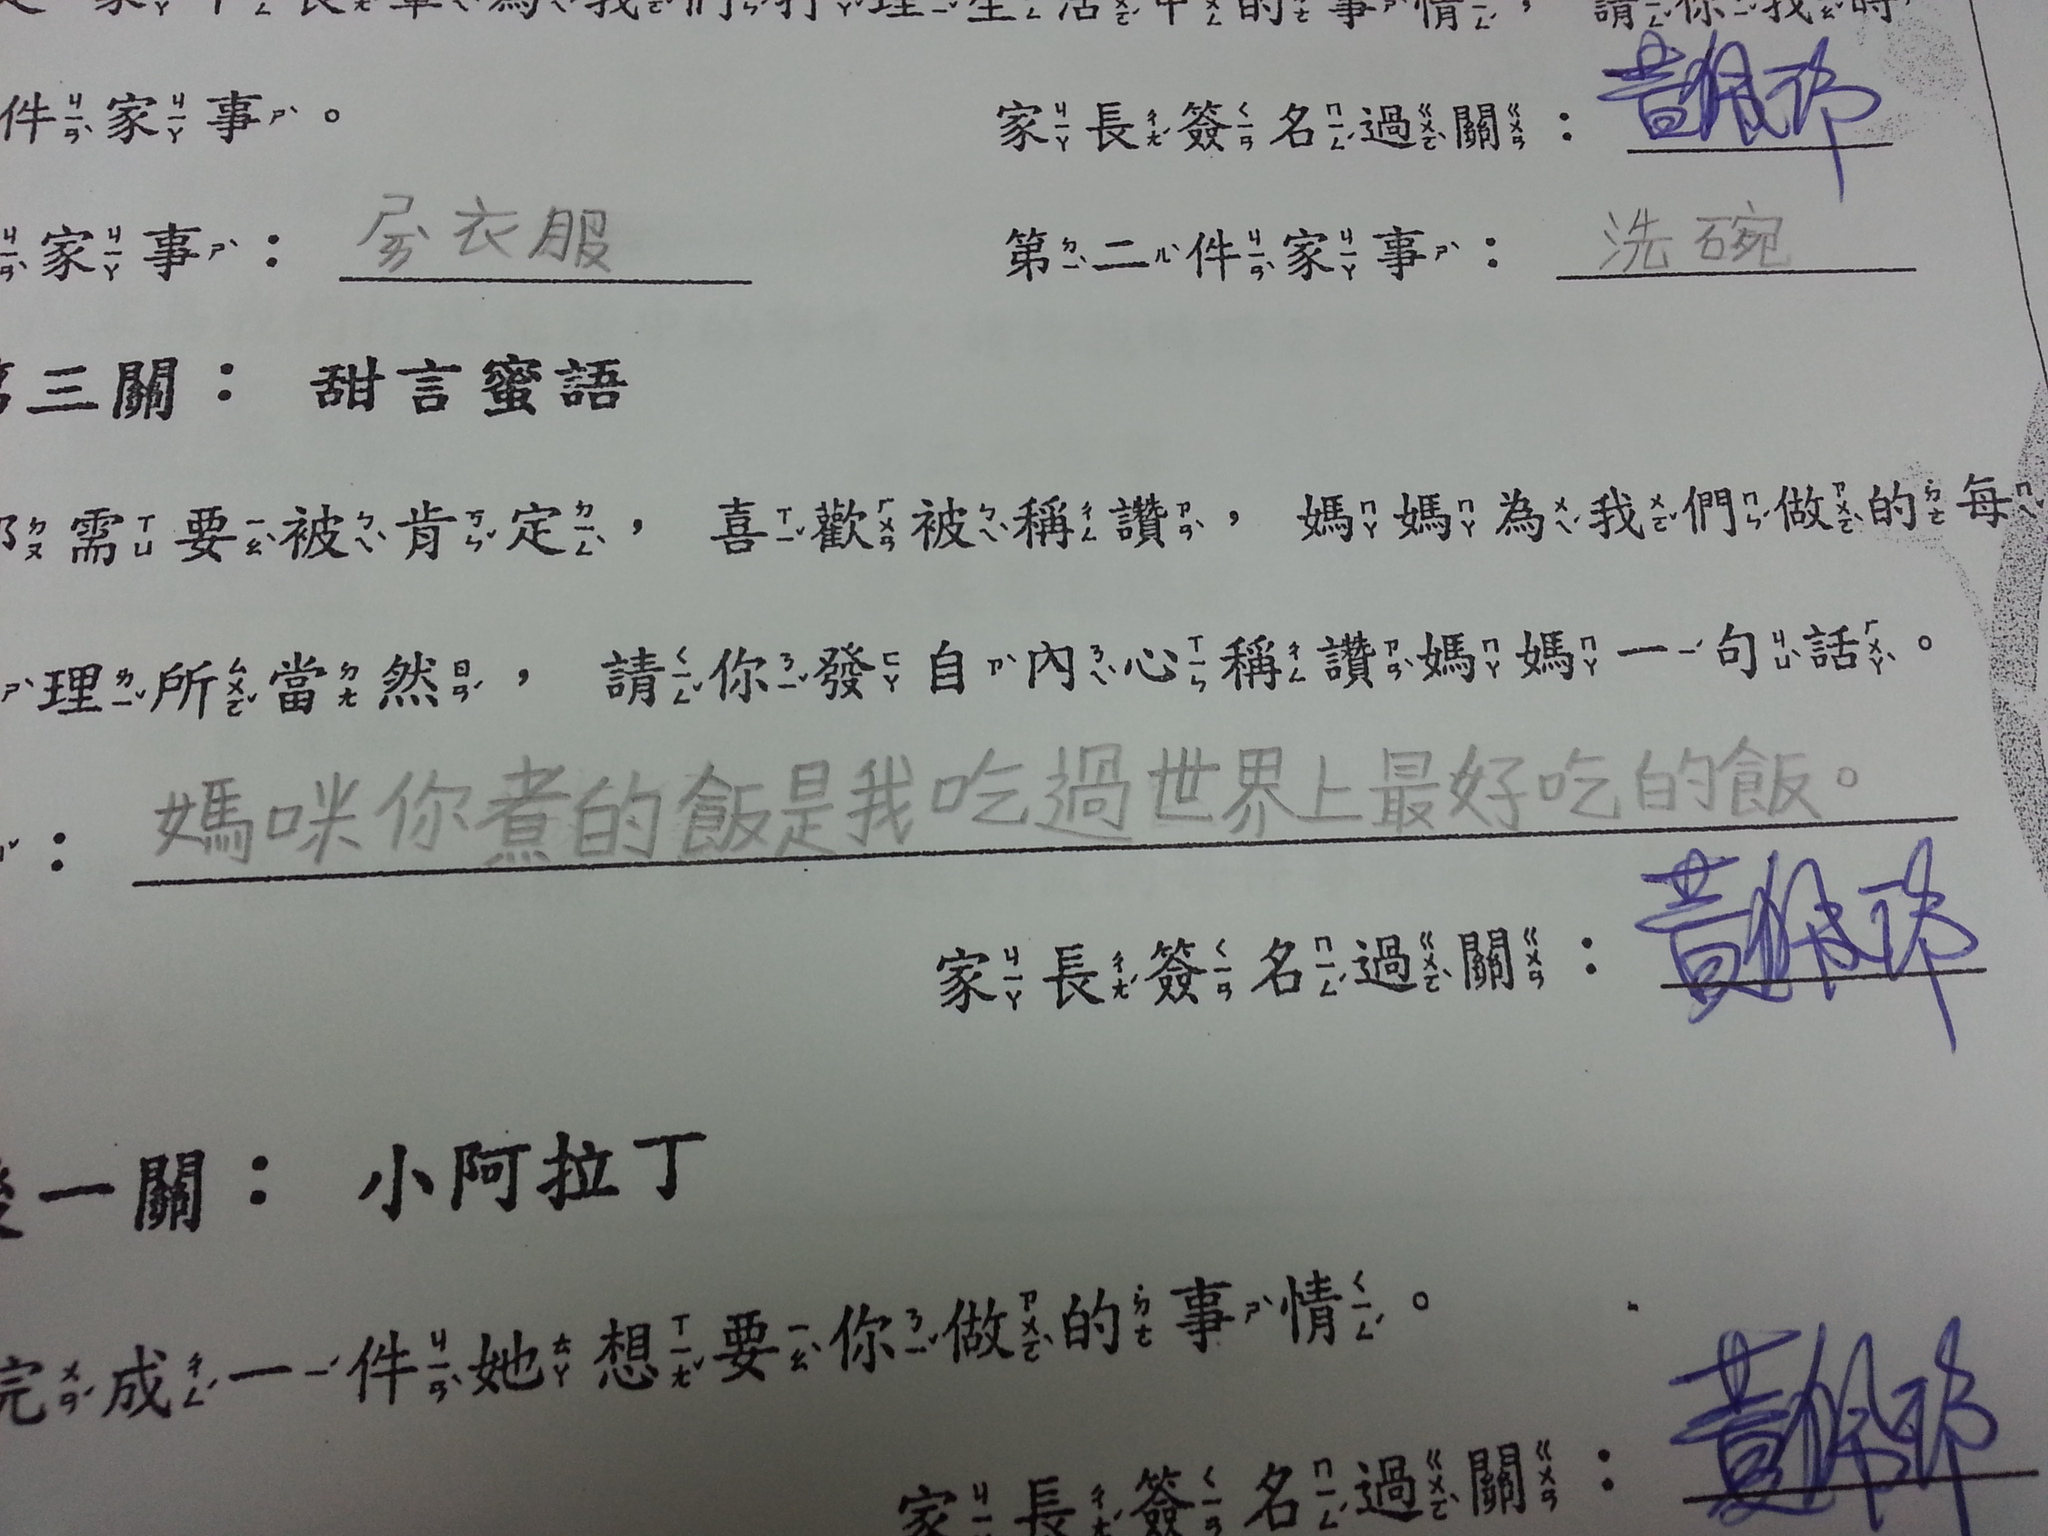 家中長輩為我們打理生活中的事情，請你我時
件家事。 家長簽名過關：
家事：ㄕㄞˋ衣服 第二件家事：洗碗
第三關：甜言蜜語
都需要被肯定，喜歡被稱讚，媽媽為我們做的每
理所當然，請你發自內心稱讚媽媽一句話。
：媽咪你煮的飯是我吃過世界上最好吃的飯。
家長簽名過關：
後一關：小阿拉丁
完成一件她想要你做的事情。
家長簽名過關：